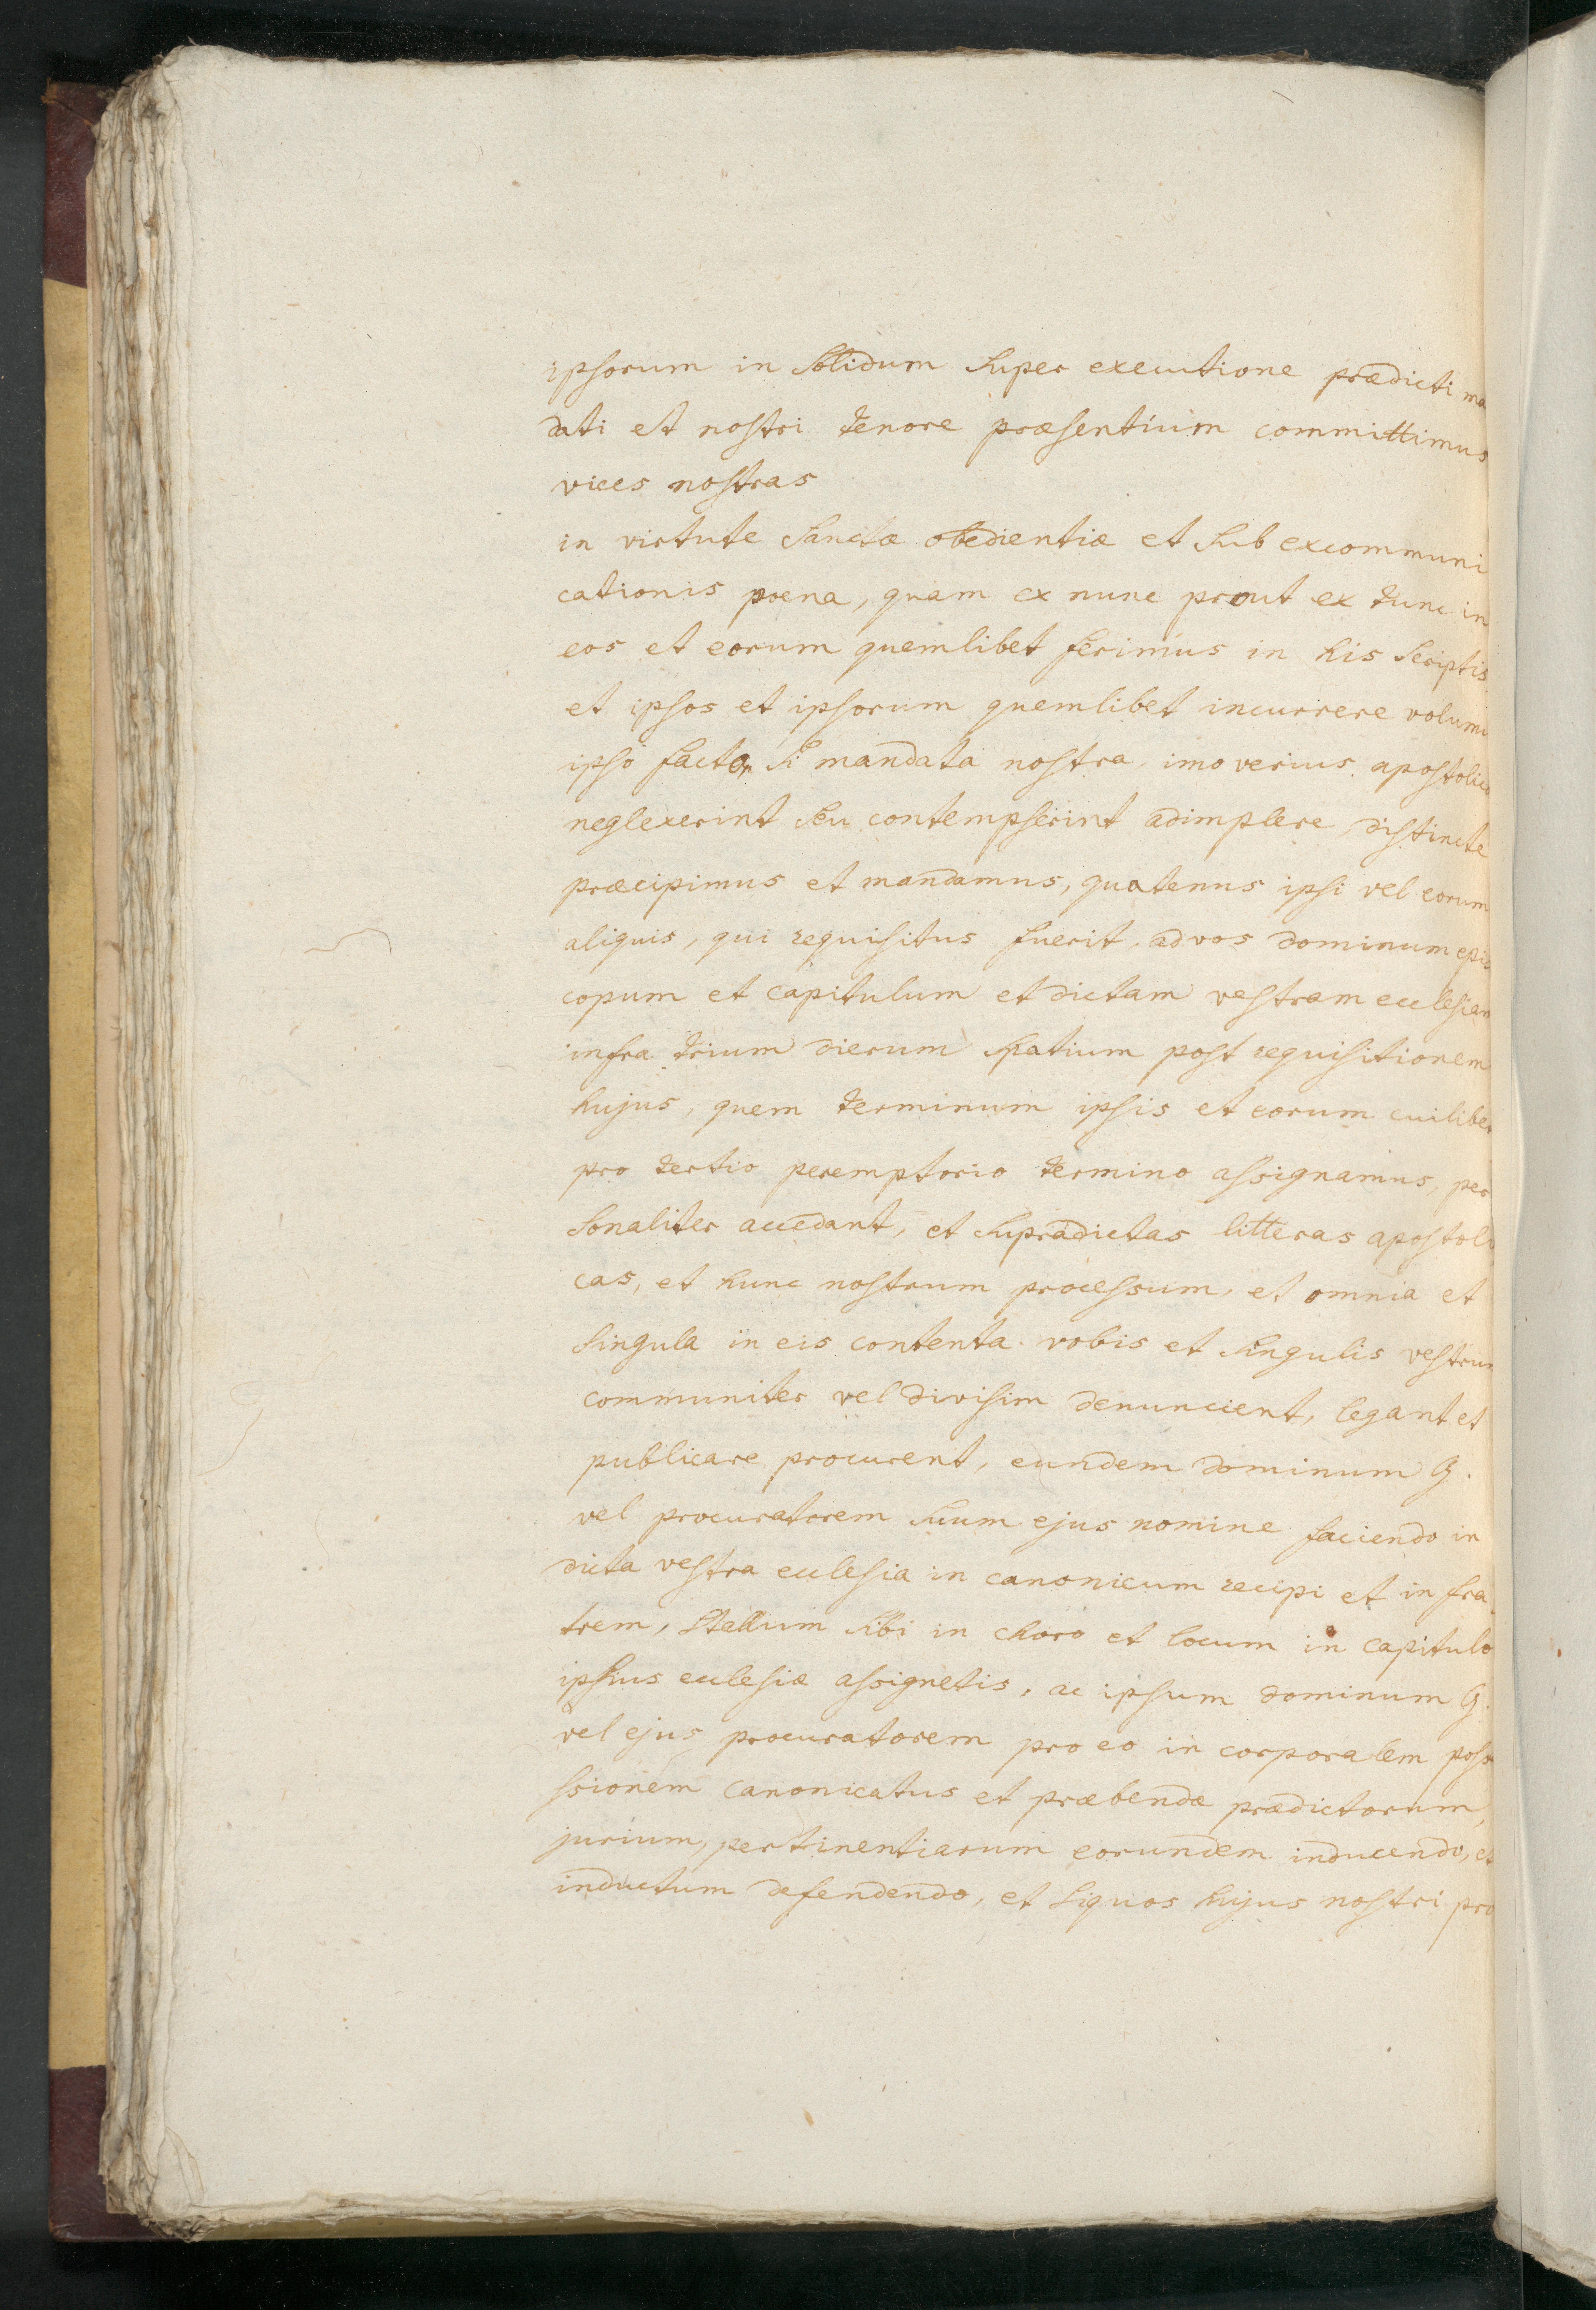 ipsorum in solidum super executione prædicti ma
dati et nostri tenore præsentium committimus
vices nostras
in virtute sanctæ obedientiæ et sub excommuni
cationis pœna, quam ex nunc prout ex tunc in
eos et eorum quemlibet ferimus in his scriptis
et ipsos et ipsorum quemlibet incurrere volumu
ipso facto, si mandata nostra, imo verius apostolica
neglexerint seu contempserint adimplere, distincte
præcipimus et mandamus, quatenus ipsi vel eorum
aliquis, qui requisitus fuerit, ad vos dominum epis
copum et capitulum et dictam vestram ecclesiam
infra trium dierum spatium post requisitionem
hujus, quem terminum ipsis et eorum cuilibet
pro tertio peremptorio termino assignamus, per
sonaliter accedant, et supradictas litteras apostoli
cas, et hunc nostrum processum, et omnia et
singula in eis contenta vobis et singulis vestrum
communiter vel divisim denuncient, legant et
publicare procurent, eundem dominum G.
vel procuratorem suum ejus nomine faciendo in
dicta vestra ecclesia in canonicum recipi et in fra
trem, stallum sibi in choro et locum in capitulo
ipsius ecclesiæ assignetis, ac ipsum dominum G.
vel ejus procuratorem pro eo in corporalem posse
ssionem canonicatus et præbendæ prædictorum,
jurium, pertinentiarum eorundem inducendo, et
inductum defendendo, et siquos hujus nostri pro